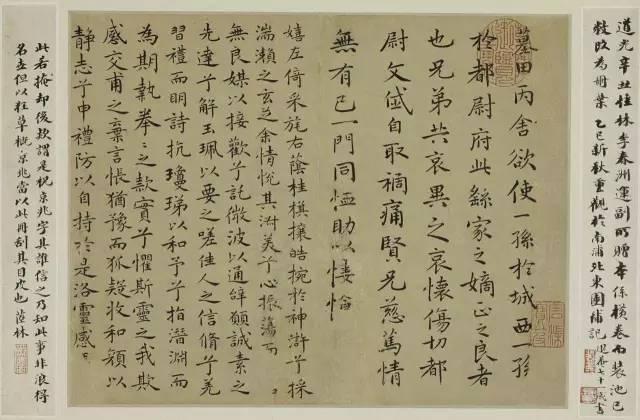 道光辛丑桂林李春洲運副所贈本係橫卷而裝池已
敝改為冊葉乙巳新秋重觀於南浦北東園補記 退菴七十歲書
墓田丙舍欲使一孫於城西一孫
於都尉府此繇家之嫡正之良者
也兄弟共哀異之哀懷傷切都
尉文岱自取禍痛賢兄慈篤情
無有已一門同恤助以悽愴
嬉左倚采旄右蔭桂旗攘皓捥於神滸兮採
湍瀨之玄芝余情悅其淑美兮心振蕩而
無良媒以接歡兮託微波以通辭願誠素之
先達兮解玉珮以要之嗟佳人之信脩兮羌
習禮而明詩抗瓊珶以和予兮指潛淵而
為期執拳〻之款實兮懼斯靈之我欺
感交甫之棄言悵猶豫而狐疑收和顏以
靜志兮申禮防以自持於是洛靈感
此若掩却後款謂是祝京兆字其誰信之乃知此事非浪得
名立但以狂草概京兆當以此冊刮其目皮也 茝林